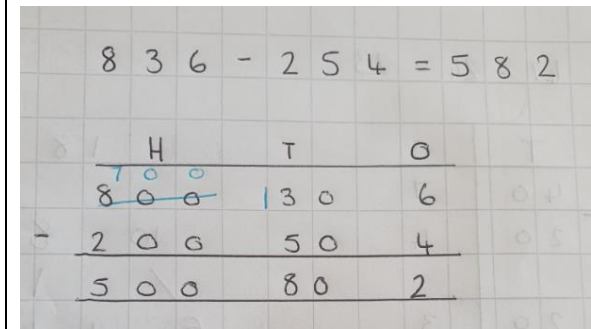 836 - 254 = 582
H T O
700
800 130 6
- 200 50 4
500 80 2